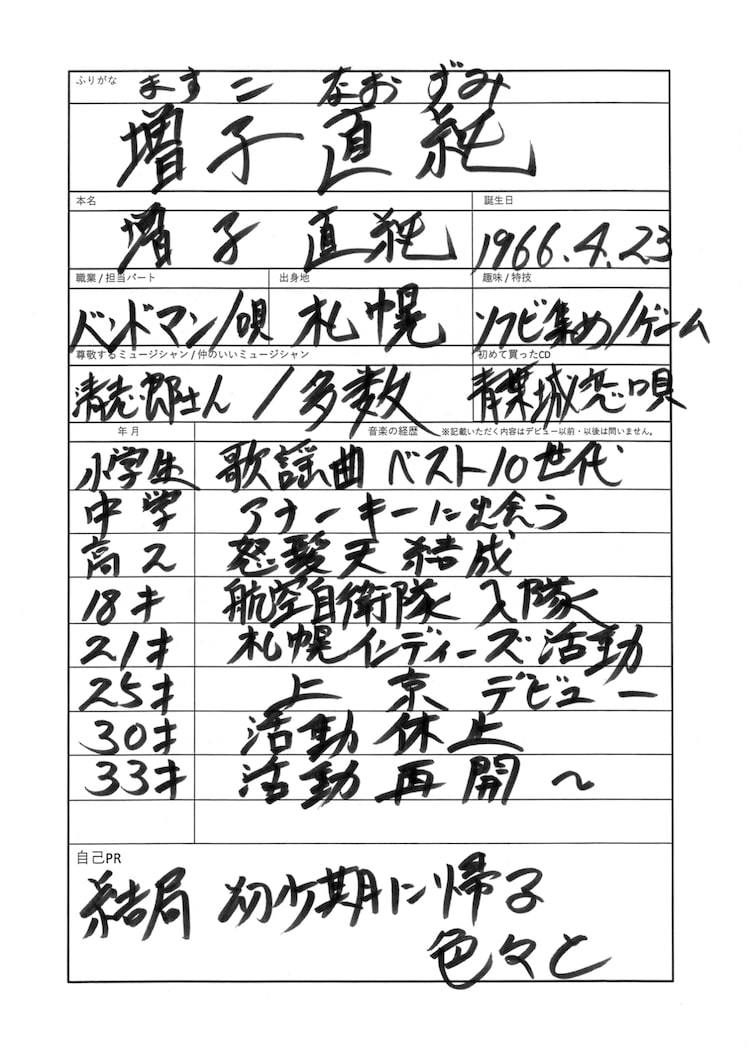 ふりがな
ますこ なおずみ
増子直純
本名
誕生日
増子 直純
1966.4.23
職業 / 担当パート
出身地
趣味 / 特技
バンドマン/唄
札幌
ソフビ集め/ゲーム
尊敬するミュージシャン / 仲のいいミュージシャン
初めて買ったCD
清志郎さん / 多数
青葉城恋唄
年 月
音楽の経歴 ※記載いただく内容はデビュー以前・以後は問いません。
小学生 歌謡曲 ベスト10世代
中学 アナーキーに出会う
高2 怒髪天 結成
18才 航空自衛隊 入隊
21才 札幌インディーズ活動
25才 上京 デビュー
30才 活動休止
33才 活動再開〜
自己PR
結局 幼少期に帰る
色々と